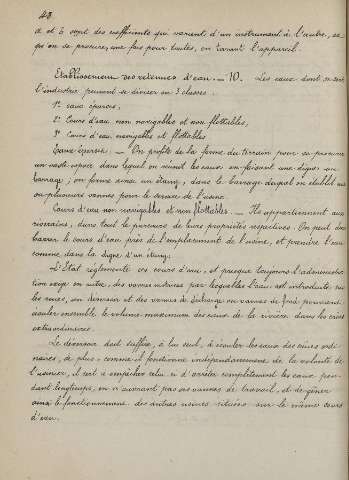 48
a et b sont des coefficients qui varient d'un instrument à l'autre, et
qu'on se procure, une fois pour toutes, en tarant l'appareil.
Etablissement des retenues d'eau. — 70. Les eaux dont se sert
l'industrie peuvent se diviser en 3 classes:
1° eaux éparses,
2° Cours d'eau non navigables et non flottables,
3° Cours d'eau navigables et flottables
Eaux éparses. — On profite de la forme du terrain pour se procurer
un vaste espace dans lequel on réunit les eaux en faisant une digue ou
barrage; on forme ainsi un étang, dans le barrage duquel on établit une
ou plusieurs vannes pour le service de l'usine.
Cours d'eau non navigables et non flottables. — Ils appartiennent aux
riverains, dans tout le parcours de leurs propriétés respectives. On peut donc
barrer le cours d'eau près de l'emplacement de l'usine, et prendre l'eau
comme dans la digue d'un étang.
L'Etat réglemente ces cours d'eau, et presque toujours l'administration
exige en outre, des vannes motrices par lesquelles l'eau est introduite sur
les roues, un déversoir et des vannes de décharge ou vannes de fond pouvant
écouler ensemble le volume maximum des eaux de la rivière dans les crues
extraordinaires.
Le déversoir doit suffire, à lui seul, à écouler les eaux des crues ordi-
naires, de plus, comme il fonctionne indépendamment de la volonté de
l'usinier, il sert à empêcher celui-ci d'arrêter complètement les eaux pen-
dant longtemps, en n'ouvrant pas ses vannes de travail, et de gêner
ainsi le fonctionnement des autres usines situées sur le même cours
d'eau.